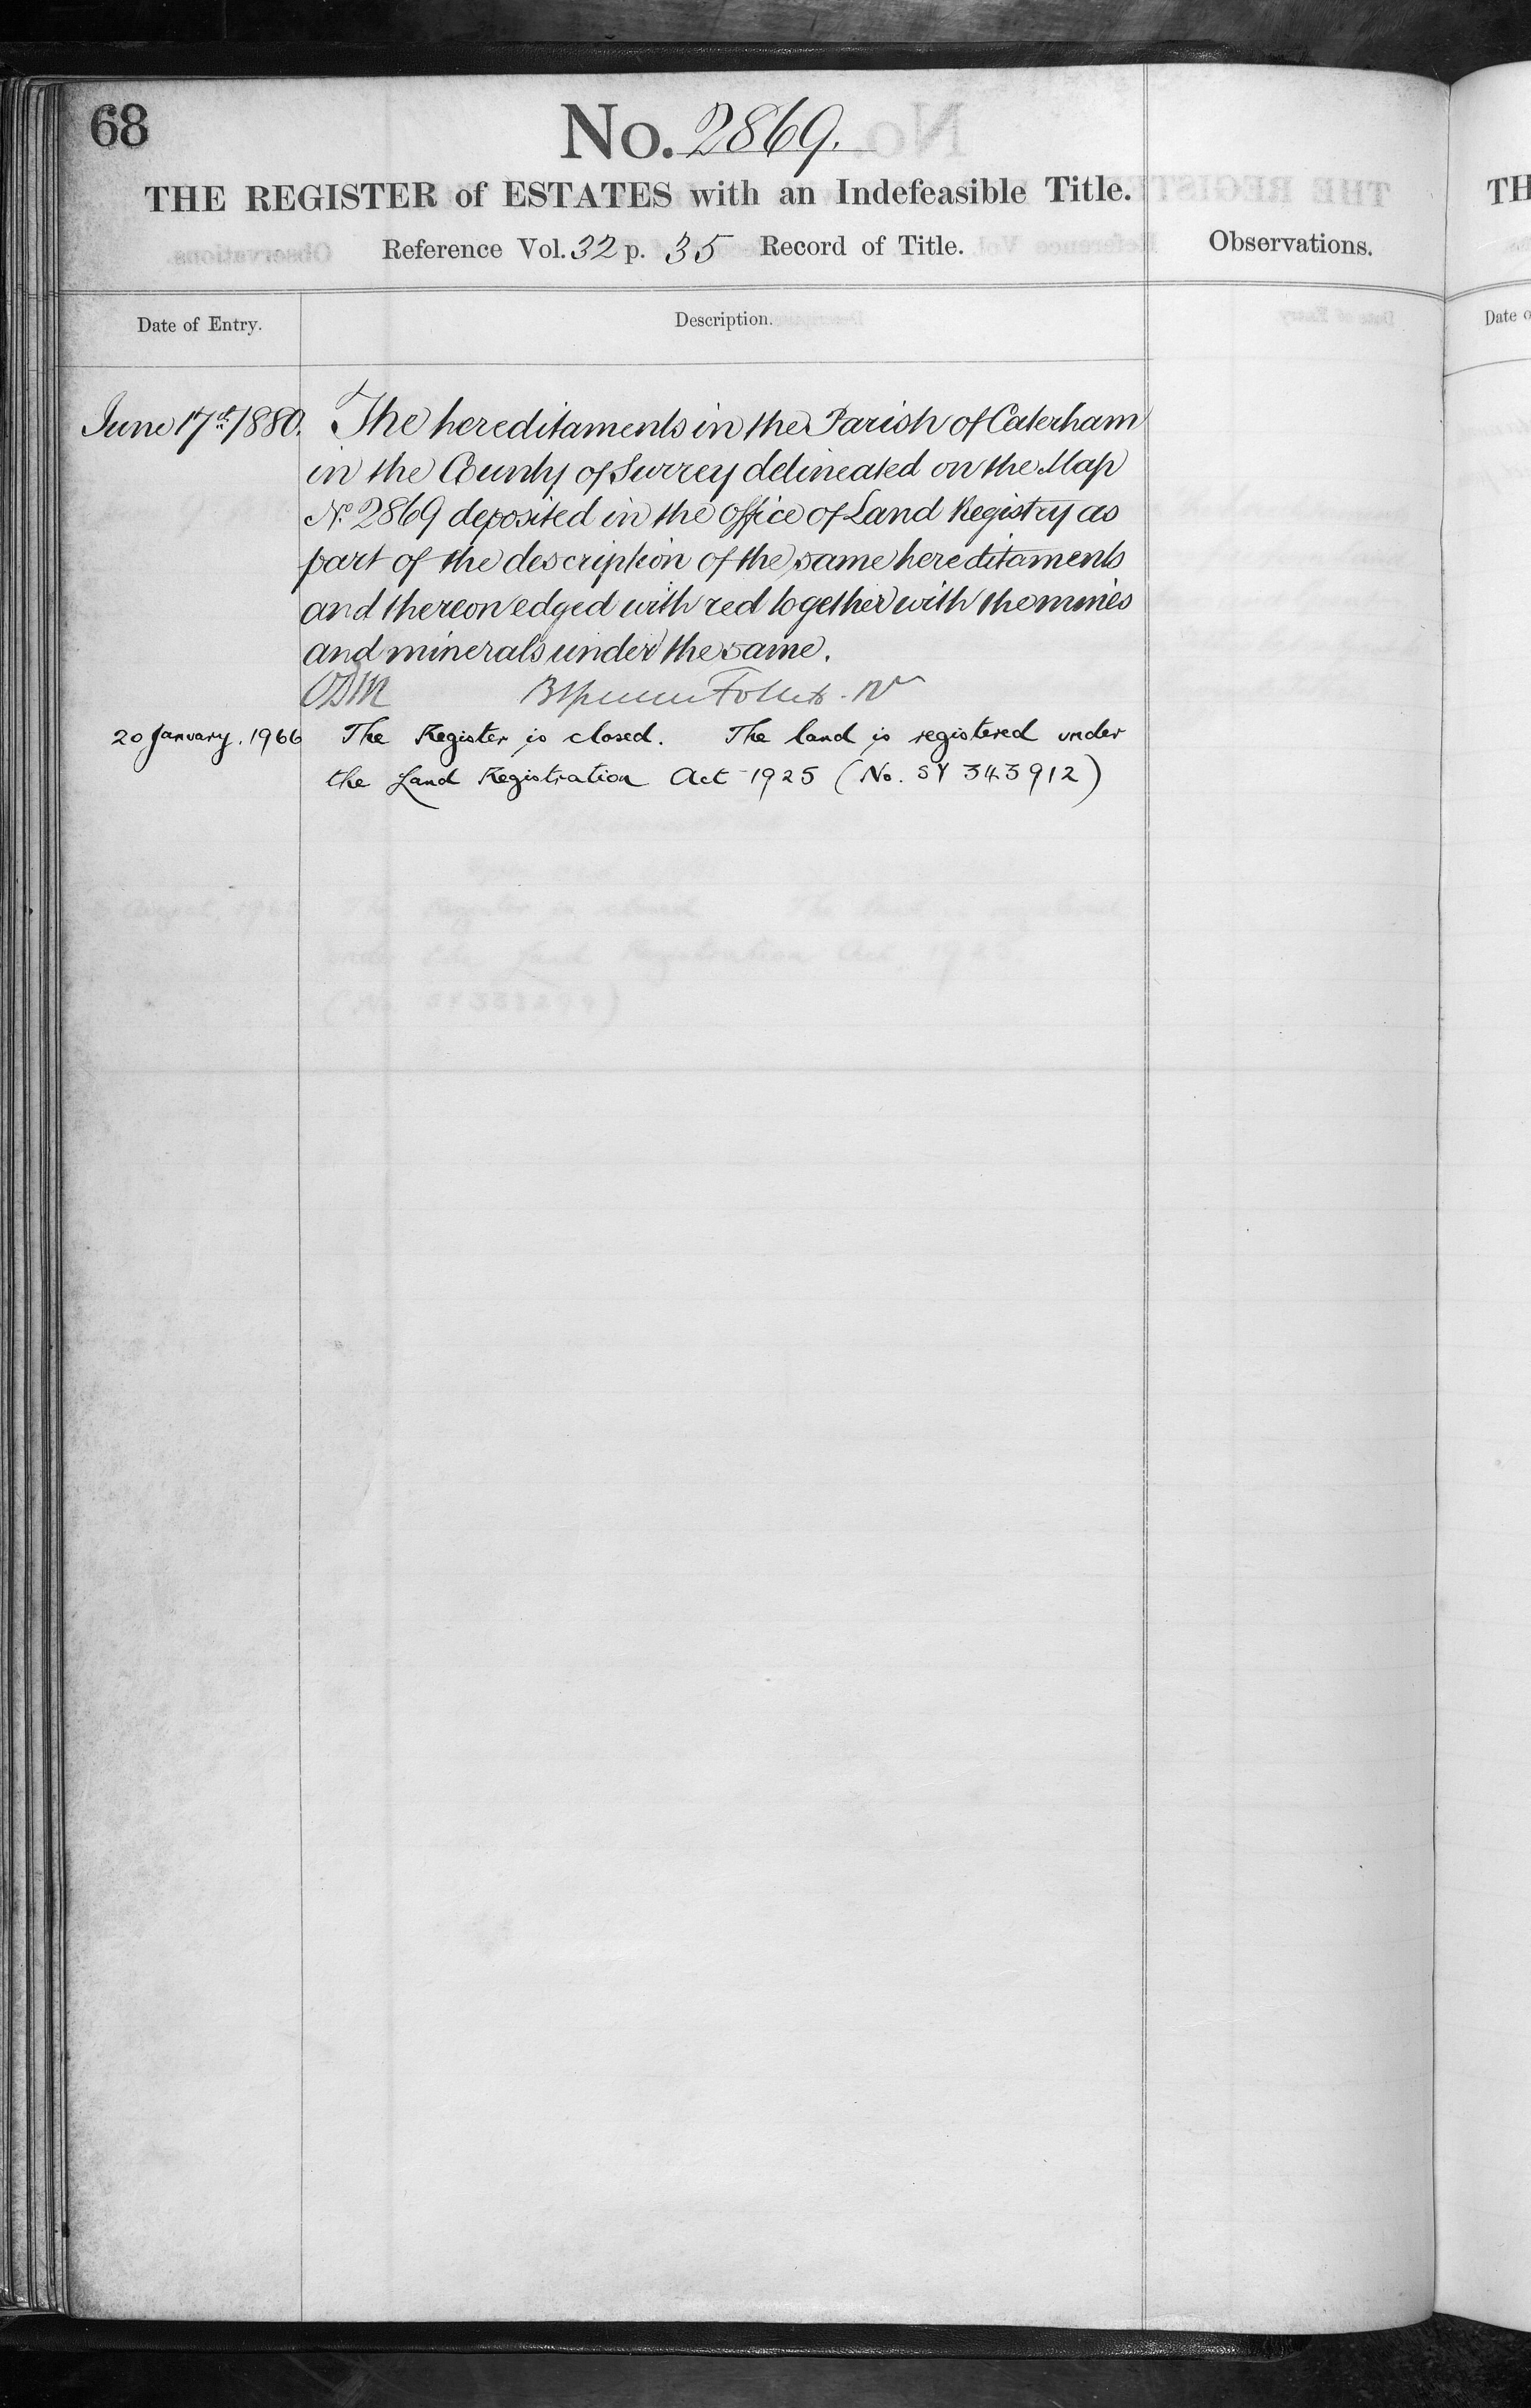 68
No. 2869.
THE REGISTER of ESTATES with an Indefeasible Title.
Reference Vol. 32 p. 35 Record of Title.
Observations.
Date of Entry.
Description.
June 17th 1880.
The hereditaments in the Parish of Caterham
in the County of Surrey delineated on the Map
No. 2869 deposited in the office of Land Registry as
part of the description of the same hereditaments
and thereon edged with red together with the mines
and minerals under the same.
20 January, 1966
The Register is closed. The land is registered under
the Land Registration Act 1925 (No. SY 343912)
TH
Date o